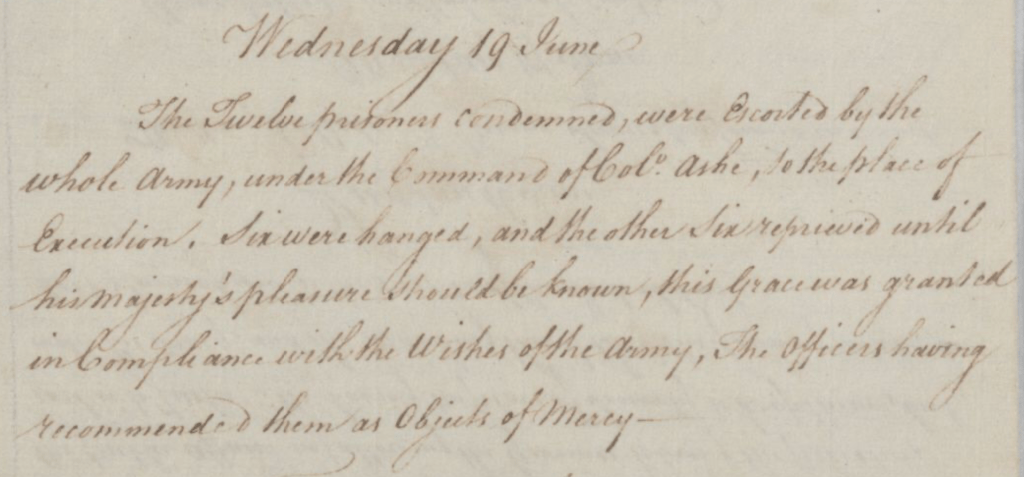 Wednesday 19 June
The Twelve prisoners condemned, were Escorted by the
whole Army, under the Command of Colo. Ashe, to the place of
Execution. Six were hanged, and the other Six repriev'd until
his Majesty's pleasure should be known, this Grace was granted
in Compliance with the Wishes of the Army, The Officers having
recommended them as Objects of Mercy—